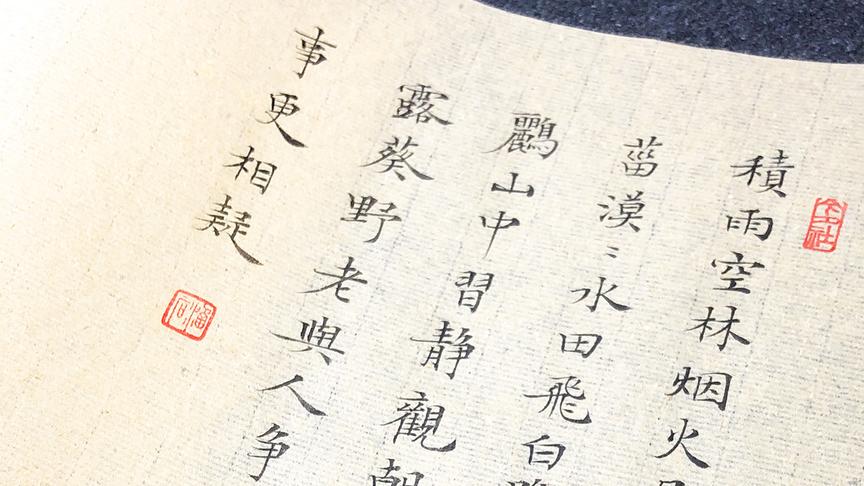 積雨空林烟火
菑漠〻水田飛白
鸝山中習静觀
露葵野老與人争
事更相疑